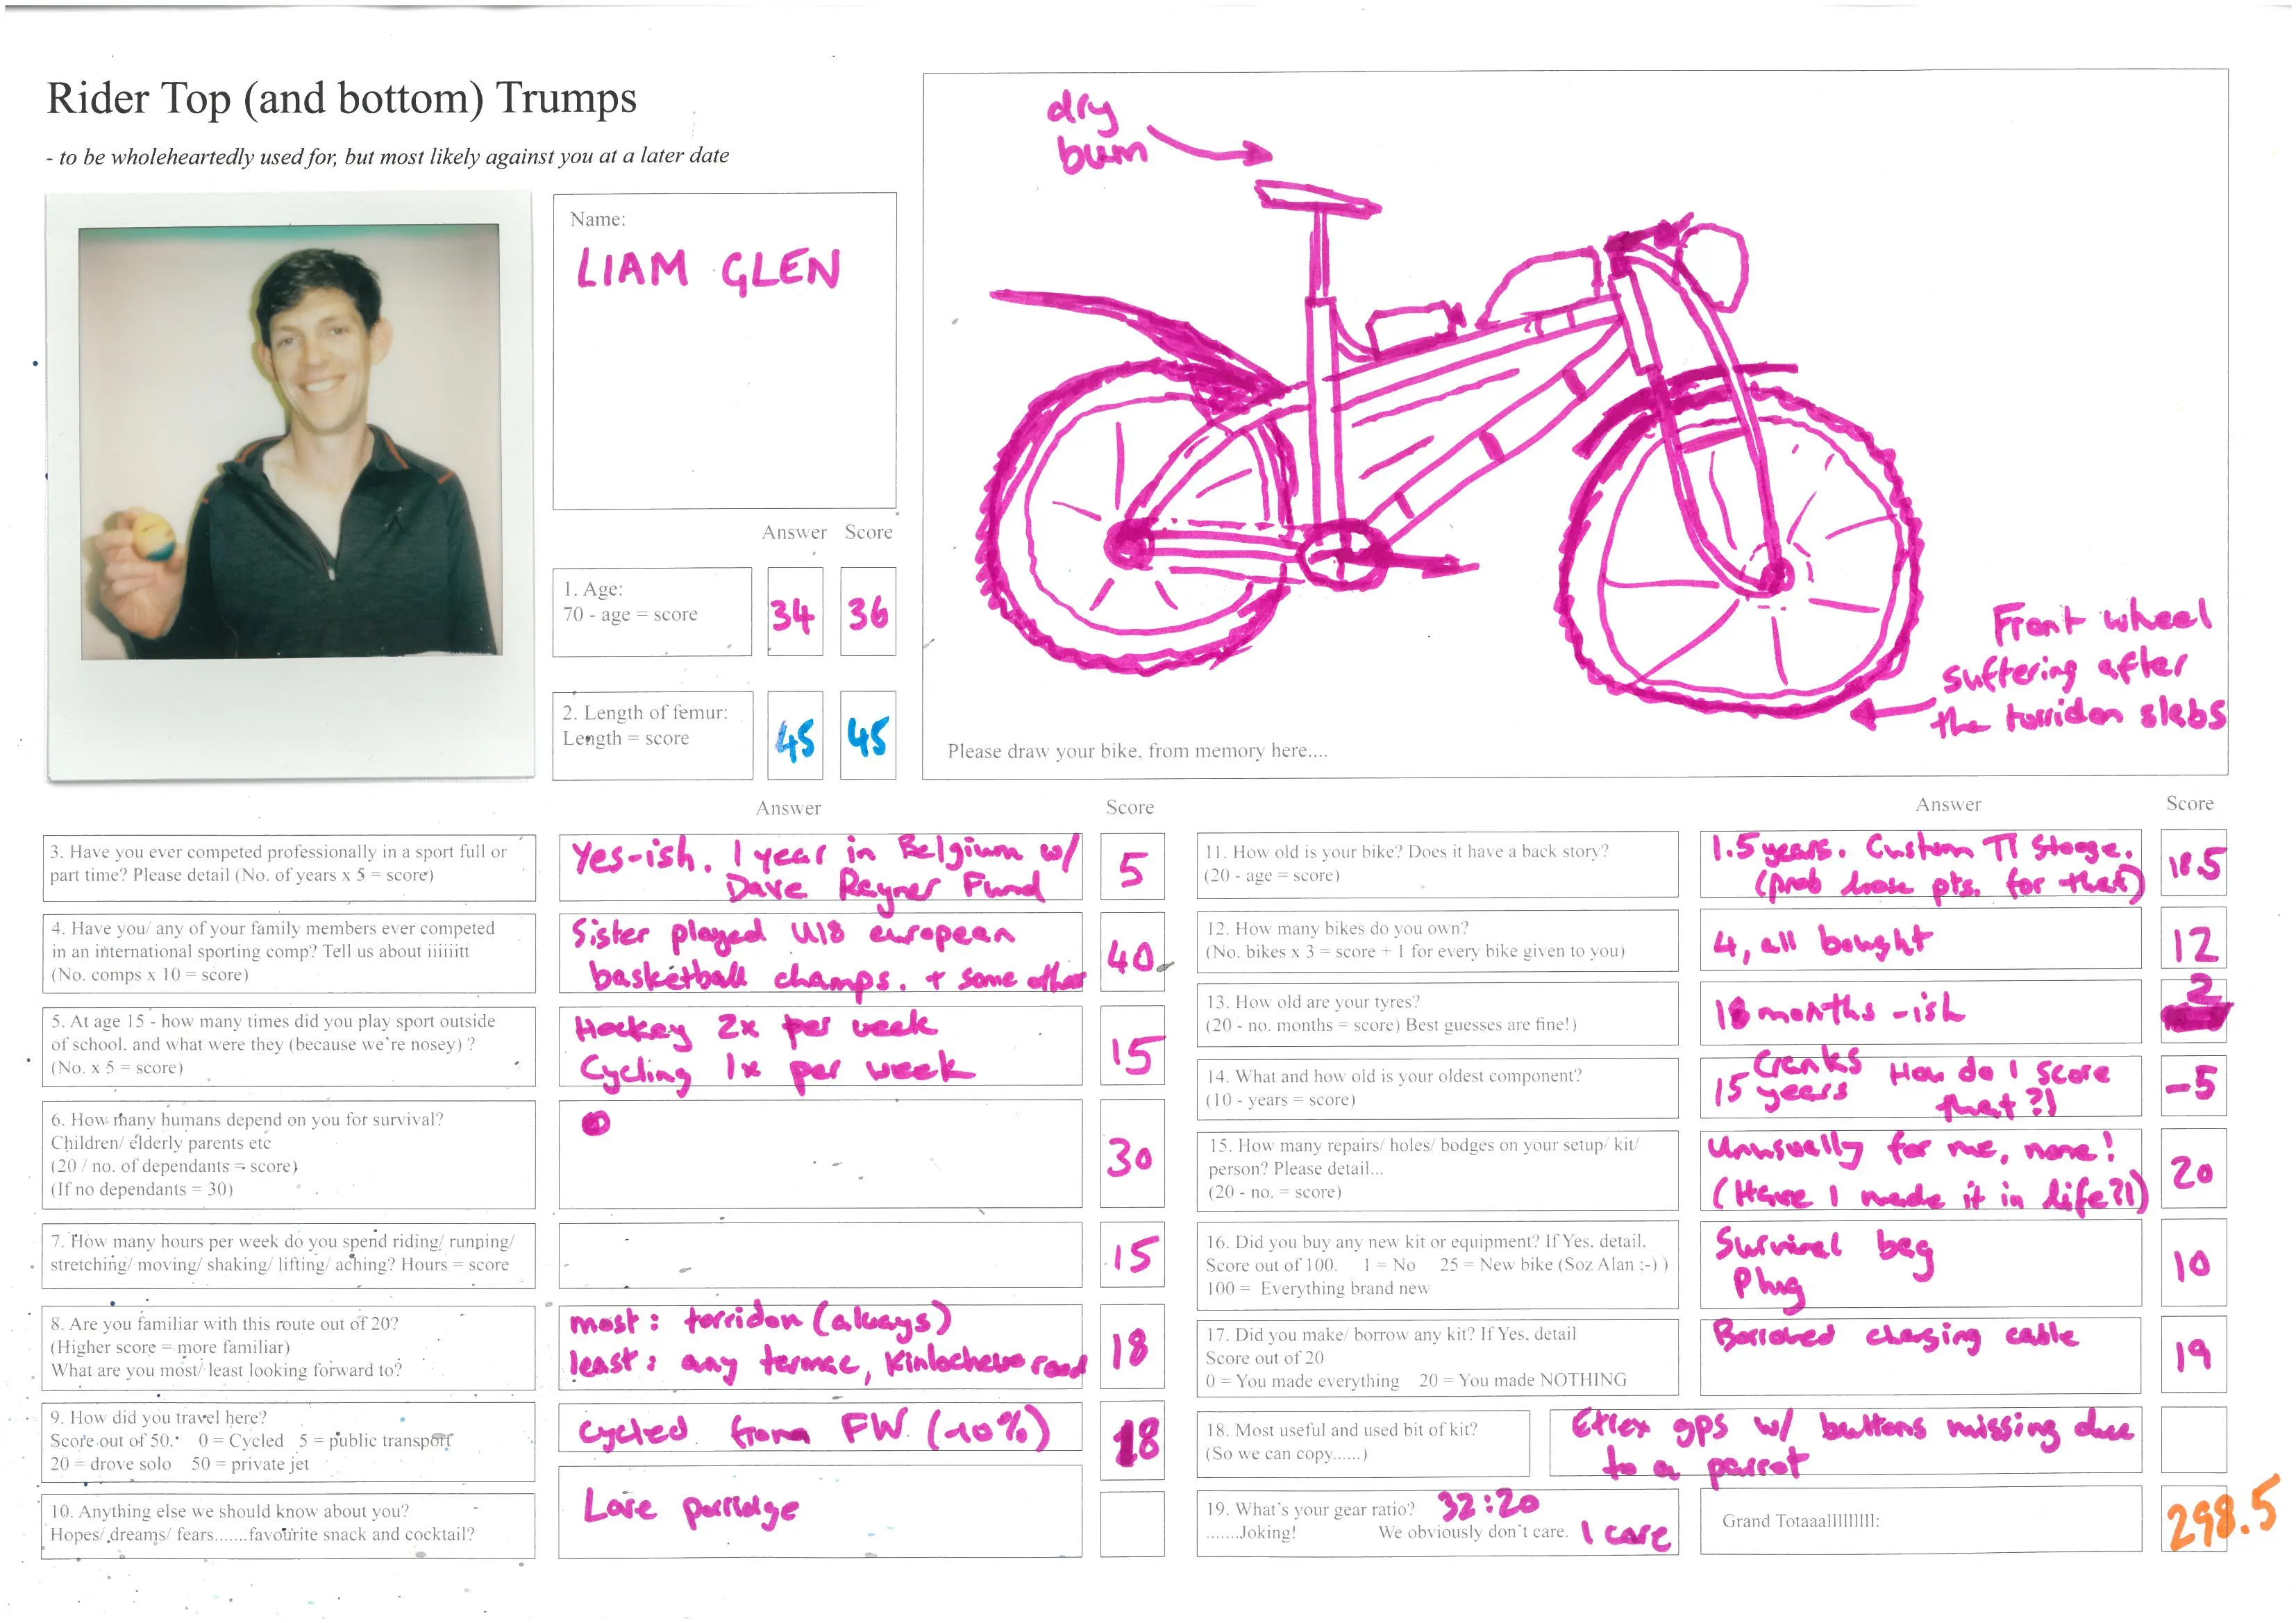 Rider Top (and bottom) Trumps
- to be wholeheartedly used for, but most likely against you at a later date
Name:
LIAM GLEN
Answer Score
1. Age:
70 - age = score
34 36
2. Length of femur:
Length = score
45 45
dry
bum
Front wheel
suffering after
the torridon slabs
Please draw your bike, from memory here....
Answer Score
3. Have you ever competed professionally in a sport full or
part time? Please detail (No. of years x 5 = score)
Yes-ish. 1 year in Belgium w/
Dave Rayner Fund
5
4. Have you/ any of your family members ever competed
in an international sporting comp? Tell us about iiiiiitt
(No. comps x 10 = score)
Sister played U18 european
basketball champs. + some other
40
5. At age 15 - how many times did you play sport outside
of school, and what were they (because we're nosey) ?
(No. x 5 = score)
Hockey 2x per week
Cycling 1x per week
15
6. How many humans depend on you for survival?
Children/ elderly parents etc
(20 / no. of dependants = score)
(If no dependants = 30)
0
30
7. How many hours per week do you spend riding/ running/
stretching/ moving/ shaking/ lifting/ aching? Hours = score
15
8. Are you familiar with this route out of 20?
(Higher score = more familiar)
What are you most/ least looking forward to?
most: torridon (always)
least: any tarmac, Kinlochewe road
18
9. How did you travel here?
Score out of 50. 0 = Cycled 5 = public transport
20 = drove solo 50 = private jet
Cycled from FW (~10%)
18
10. Anything else we should know about you?
Hopes/ dreams/ fears.......favourite snack and cocktail?
Love porridge
Answer Score
11. How old is your bike? Does it have a back story?
(20 - age = score)
1.5 years. Custom TI Stooge.
(prob lose pts. for that)
18.5
12. How many bikes do you own?
(No. bikes x 3 = score + 1 for every bike given to you)
4, all bought
12
13. How old are your tyres?
(20 - no. months = score) Best guesses are fine!)
18 months -ish
2
14. What and how old is your oldest component?
(10 - years = score)
Cranks How do I score
15 years that?!
-5
15. How many repairs/ holes/ bodges on your setup/ kit/
person? Please detail...
(20 - no. = score)
Unusually for me, none!
(Have I made it in life?!)
20
16. Did you buy any new kit or equipment? If Yes, detail.
Score out of 100. 1 = No 25 = New bike (Soz Alan ;-) )
100 = Everything brand new
Survival bag
Plug
10
17. Did you make/ borrow any kit? If Yes, detail
Score out of 20
0 = You made everything 20 = You made NOTHING
Borrowed charging cable
19
18. Most useful and used bit of kit?
(So we can copy......)
Etrex gps w/ buttons missing due
to a parrot
19. What's your gear ratio? 32:20
.......Joking! We obviously don't care. I care
Grand Totaaalllllllll:
298.5